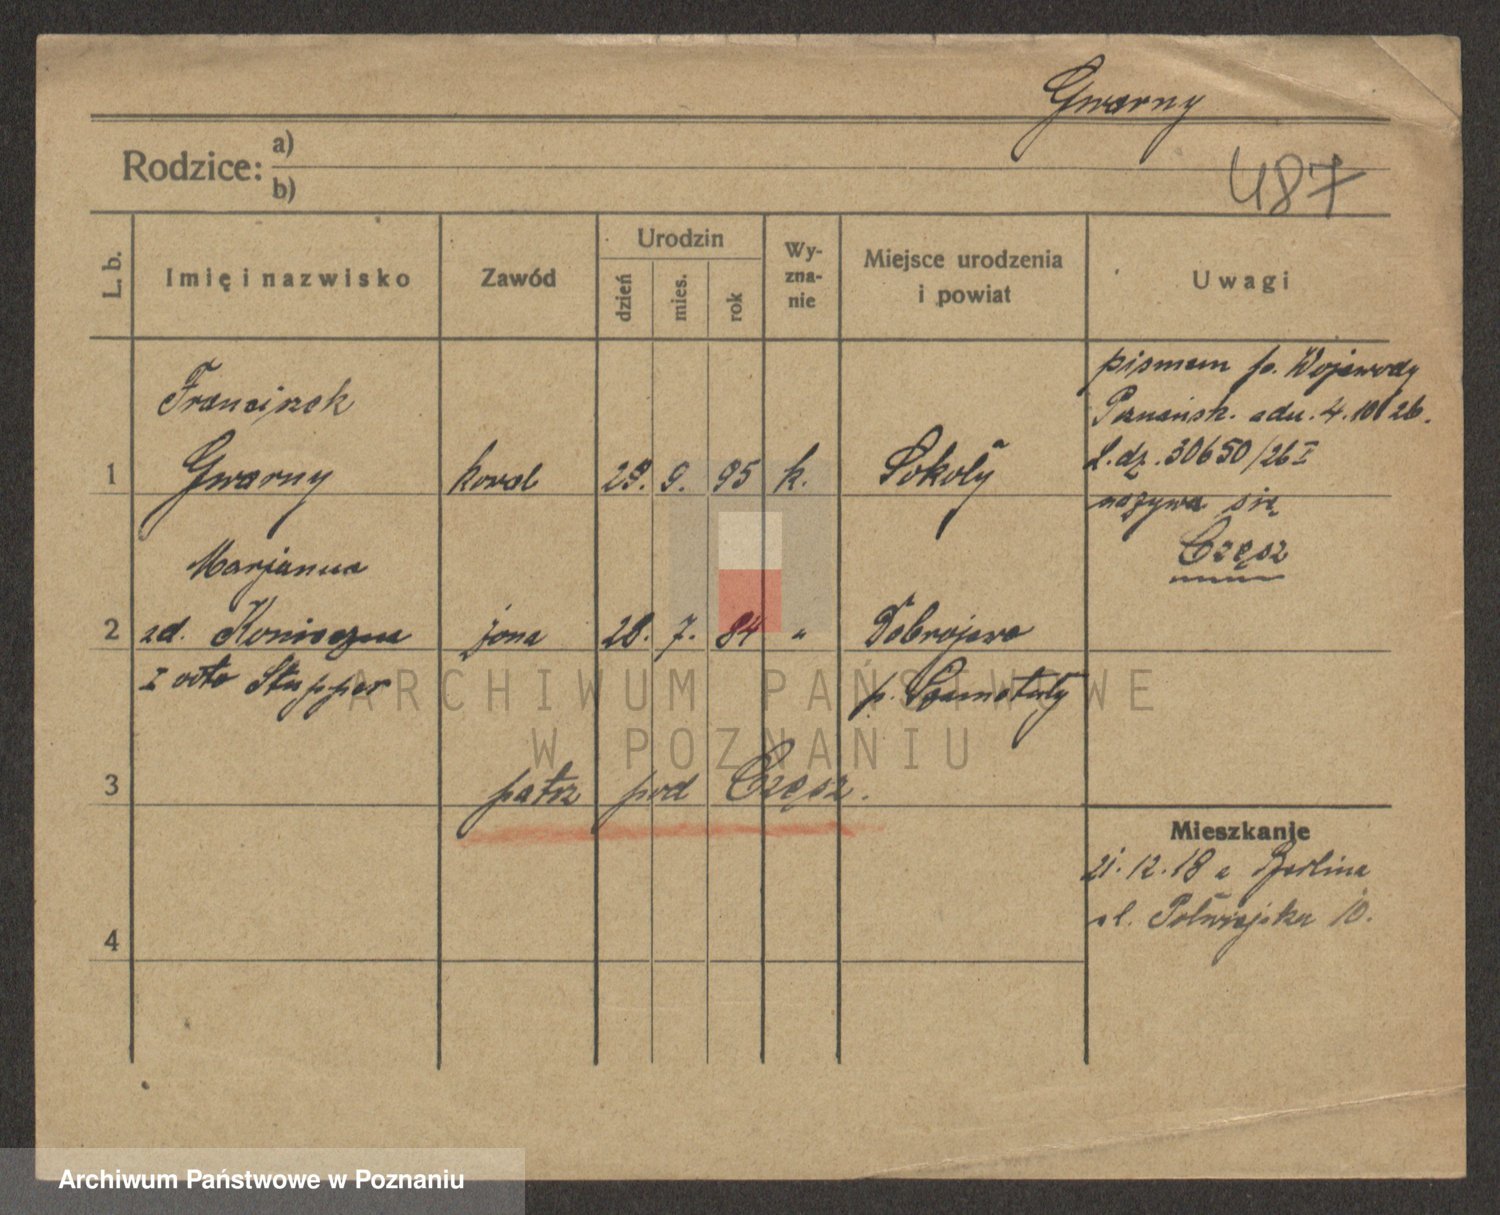 Gwarny
Rodzice: a)
b)
487
L. b.
Imię i nazwisko
Zawód
Urodzin
dzień
mies.
rok
Wy-
zna-
nie
Miejsce urodzenia
i powiat
Uwagi
pismem p. Wojewody
Poznańsk. z dn. 4. 10 26.
L. dz. 30650/26 I
nazywa się
Częsz
Franciszek
1 Gwarny kowal 29. 9. 95 k. Sokoły
Marjanna
2 zd. Konieczna żona 28. 7. 84 " Dobrojewo
I voto Stupper p. Szamotuły
3 patrz pod Częsz.
4
Mieszkanie
21. 12. 18 z Berlina
ul. Półwiejska 10.
ARCHIWUM PAŃSTWOWE
W POZNANIU
Archiwum Państwowe w Poznaniu